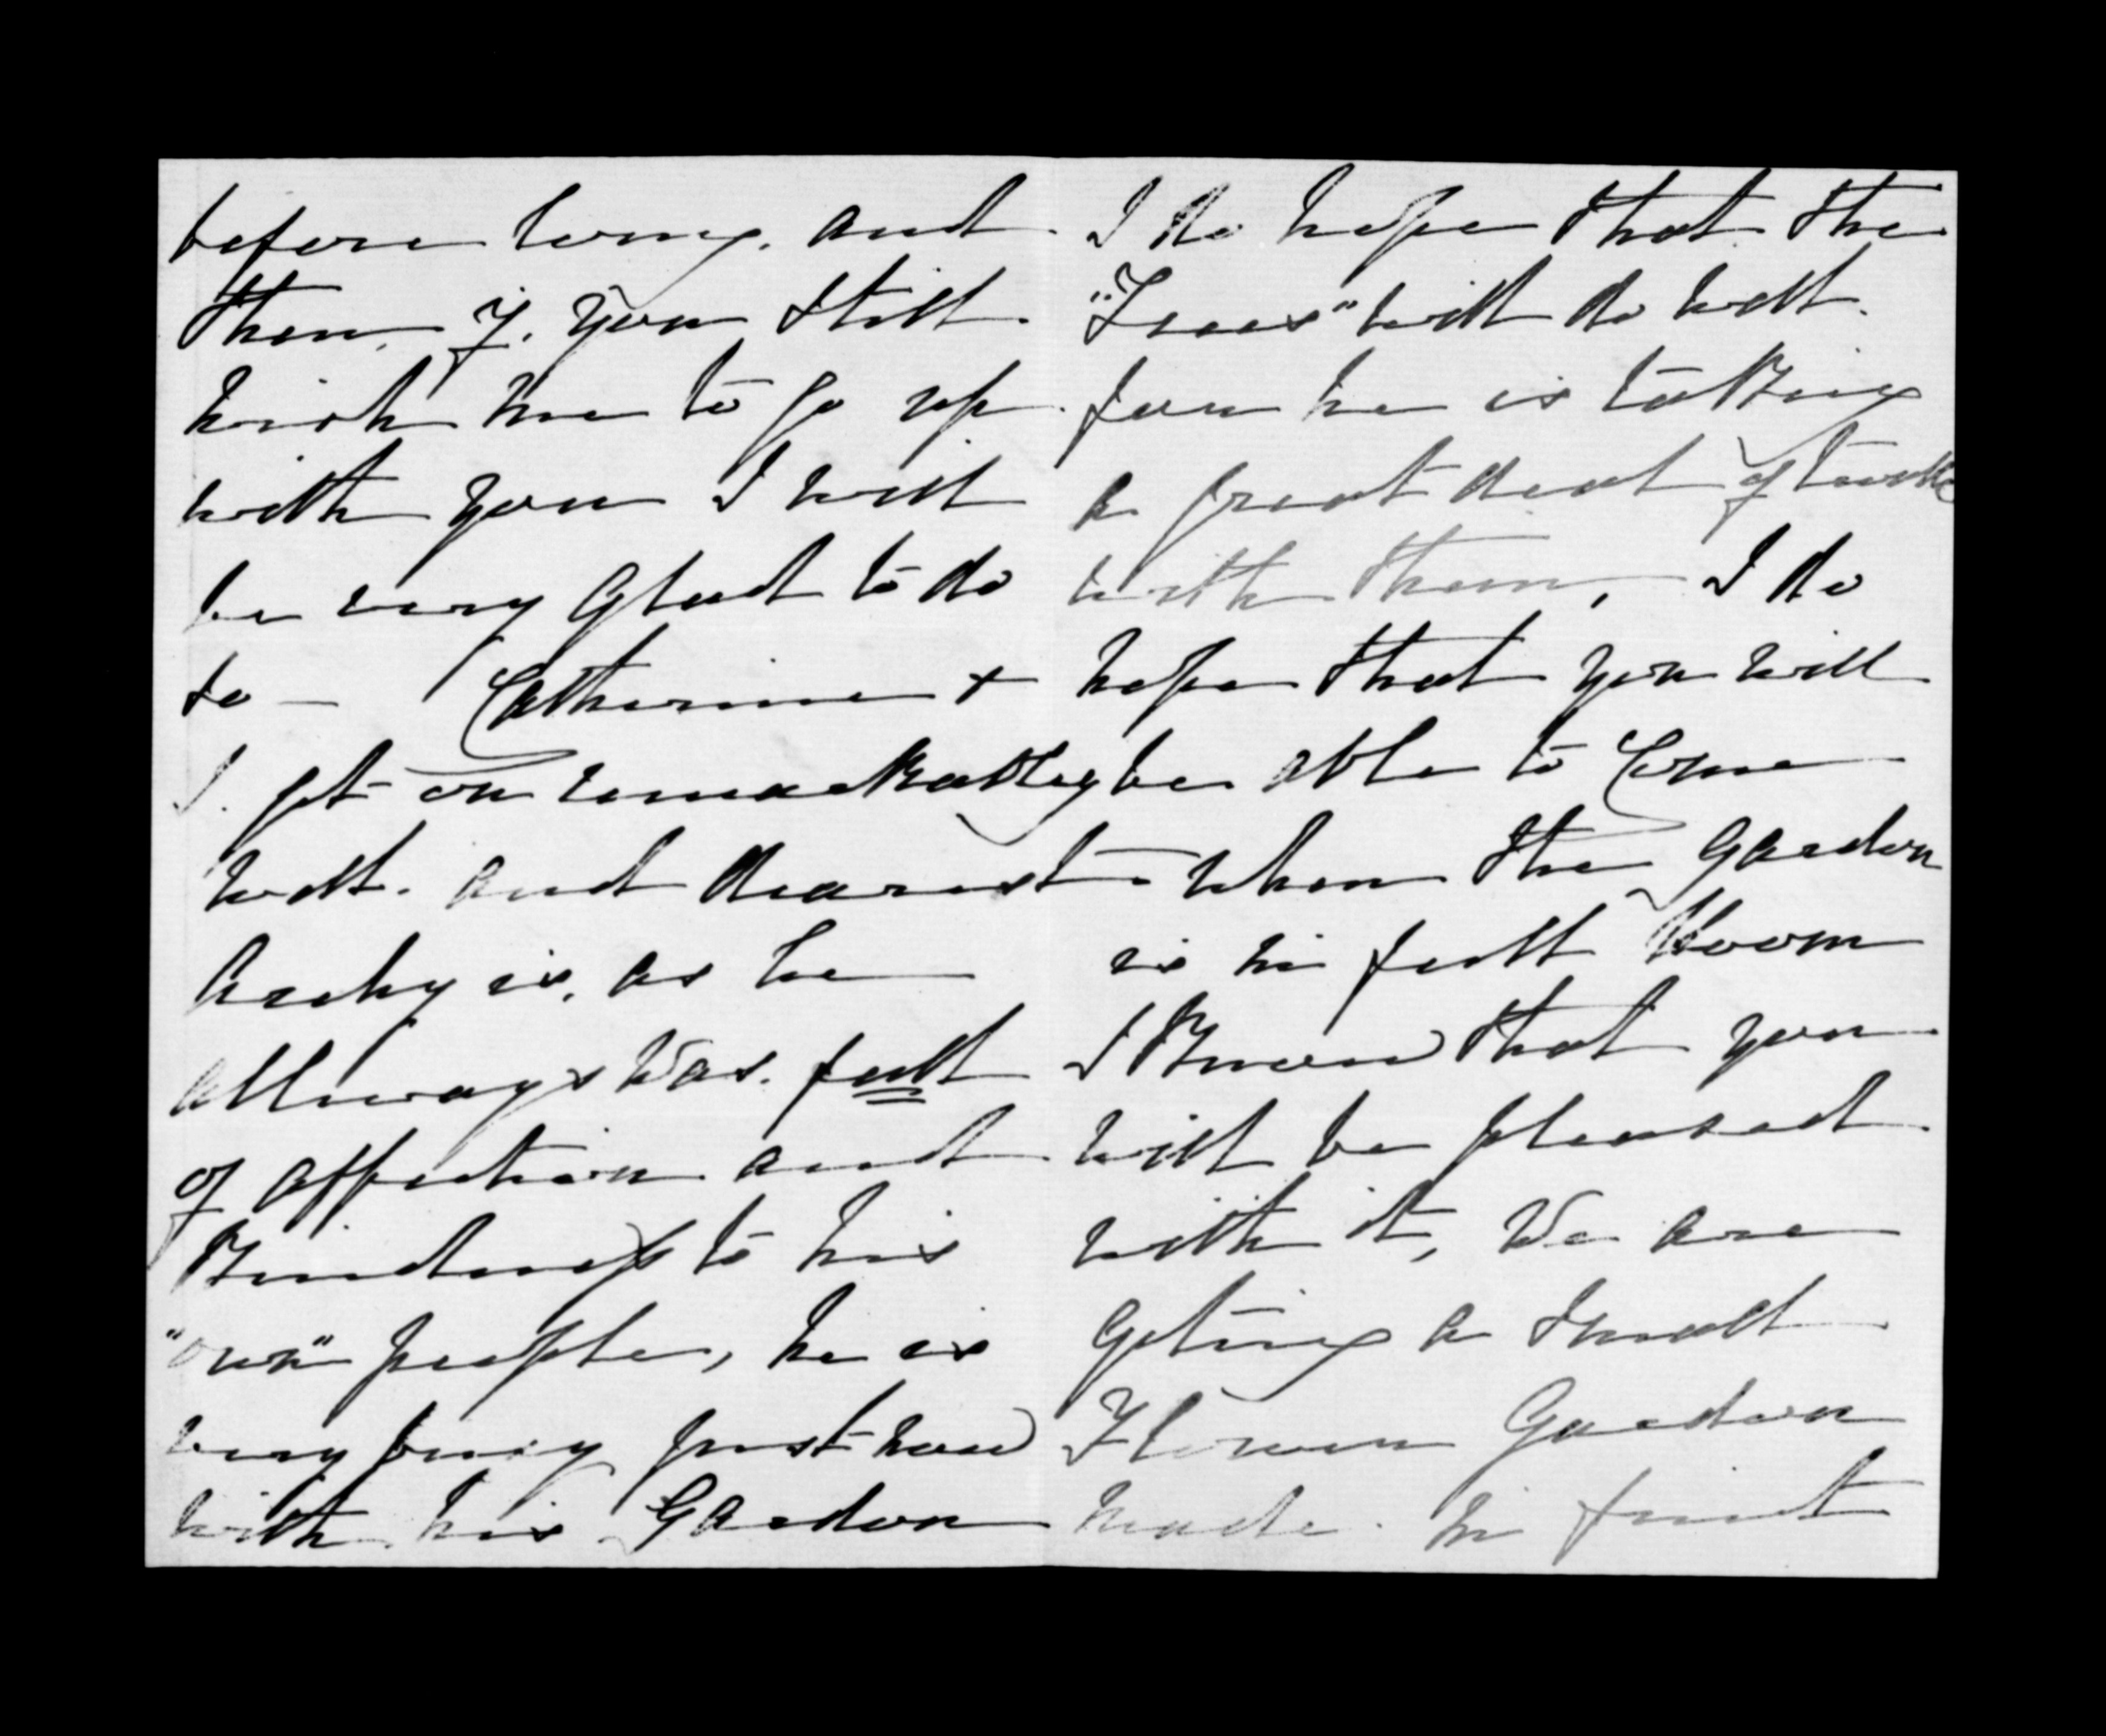 before long, and
then, if, you still
wish me to go up
with you I will
be very glad to do
so — Catherine +
I. get on remarkably
well. and dearest
Archy is, as he
allways was. full
of affection and
kindness to his
"own" people, he is
very busy just now
with his Garden
I do hope that the
"Trees" will do well.
for he is taking
a great deal of trouble
with them, I do
hope that you will
be able to Come
— when the Garden
is in full bloom
I know that you
will be pleased
with it, We are
Geting a small
Flower Garden
made. in front